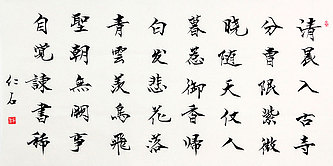 清晨入古寺
分曹限紫微
晓随天仗入
暮惹御香歸
白发悲花落
青雲羡鳥飛
聖朝無闕事
自覺諫書稀
仁石